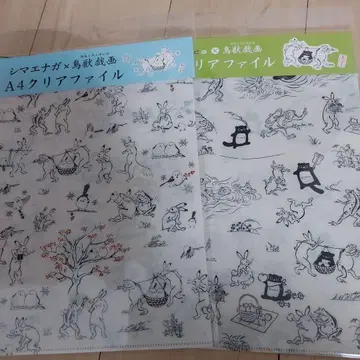 シマエナガ×鳥獣戯画
A4クリアファイル
×鳥獣戯画
リアファイル